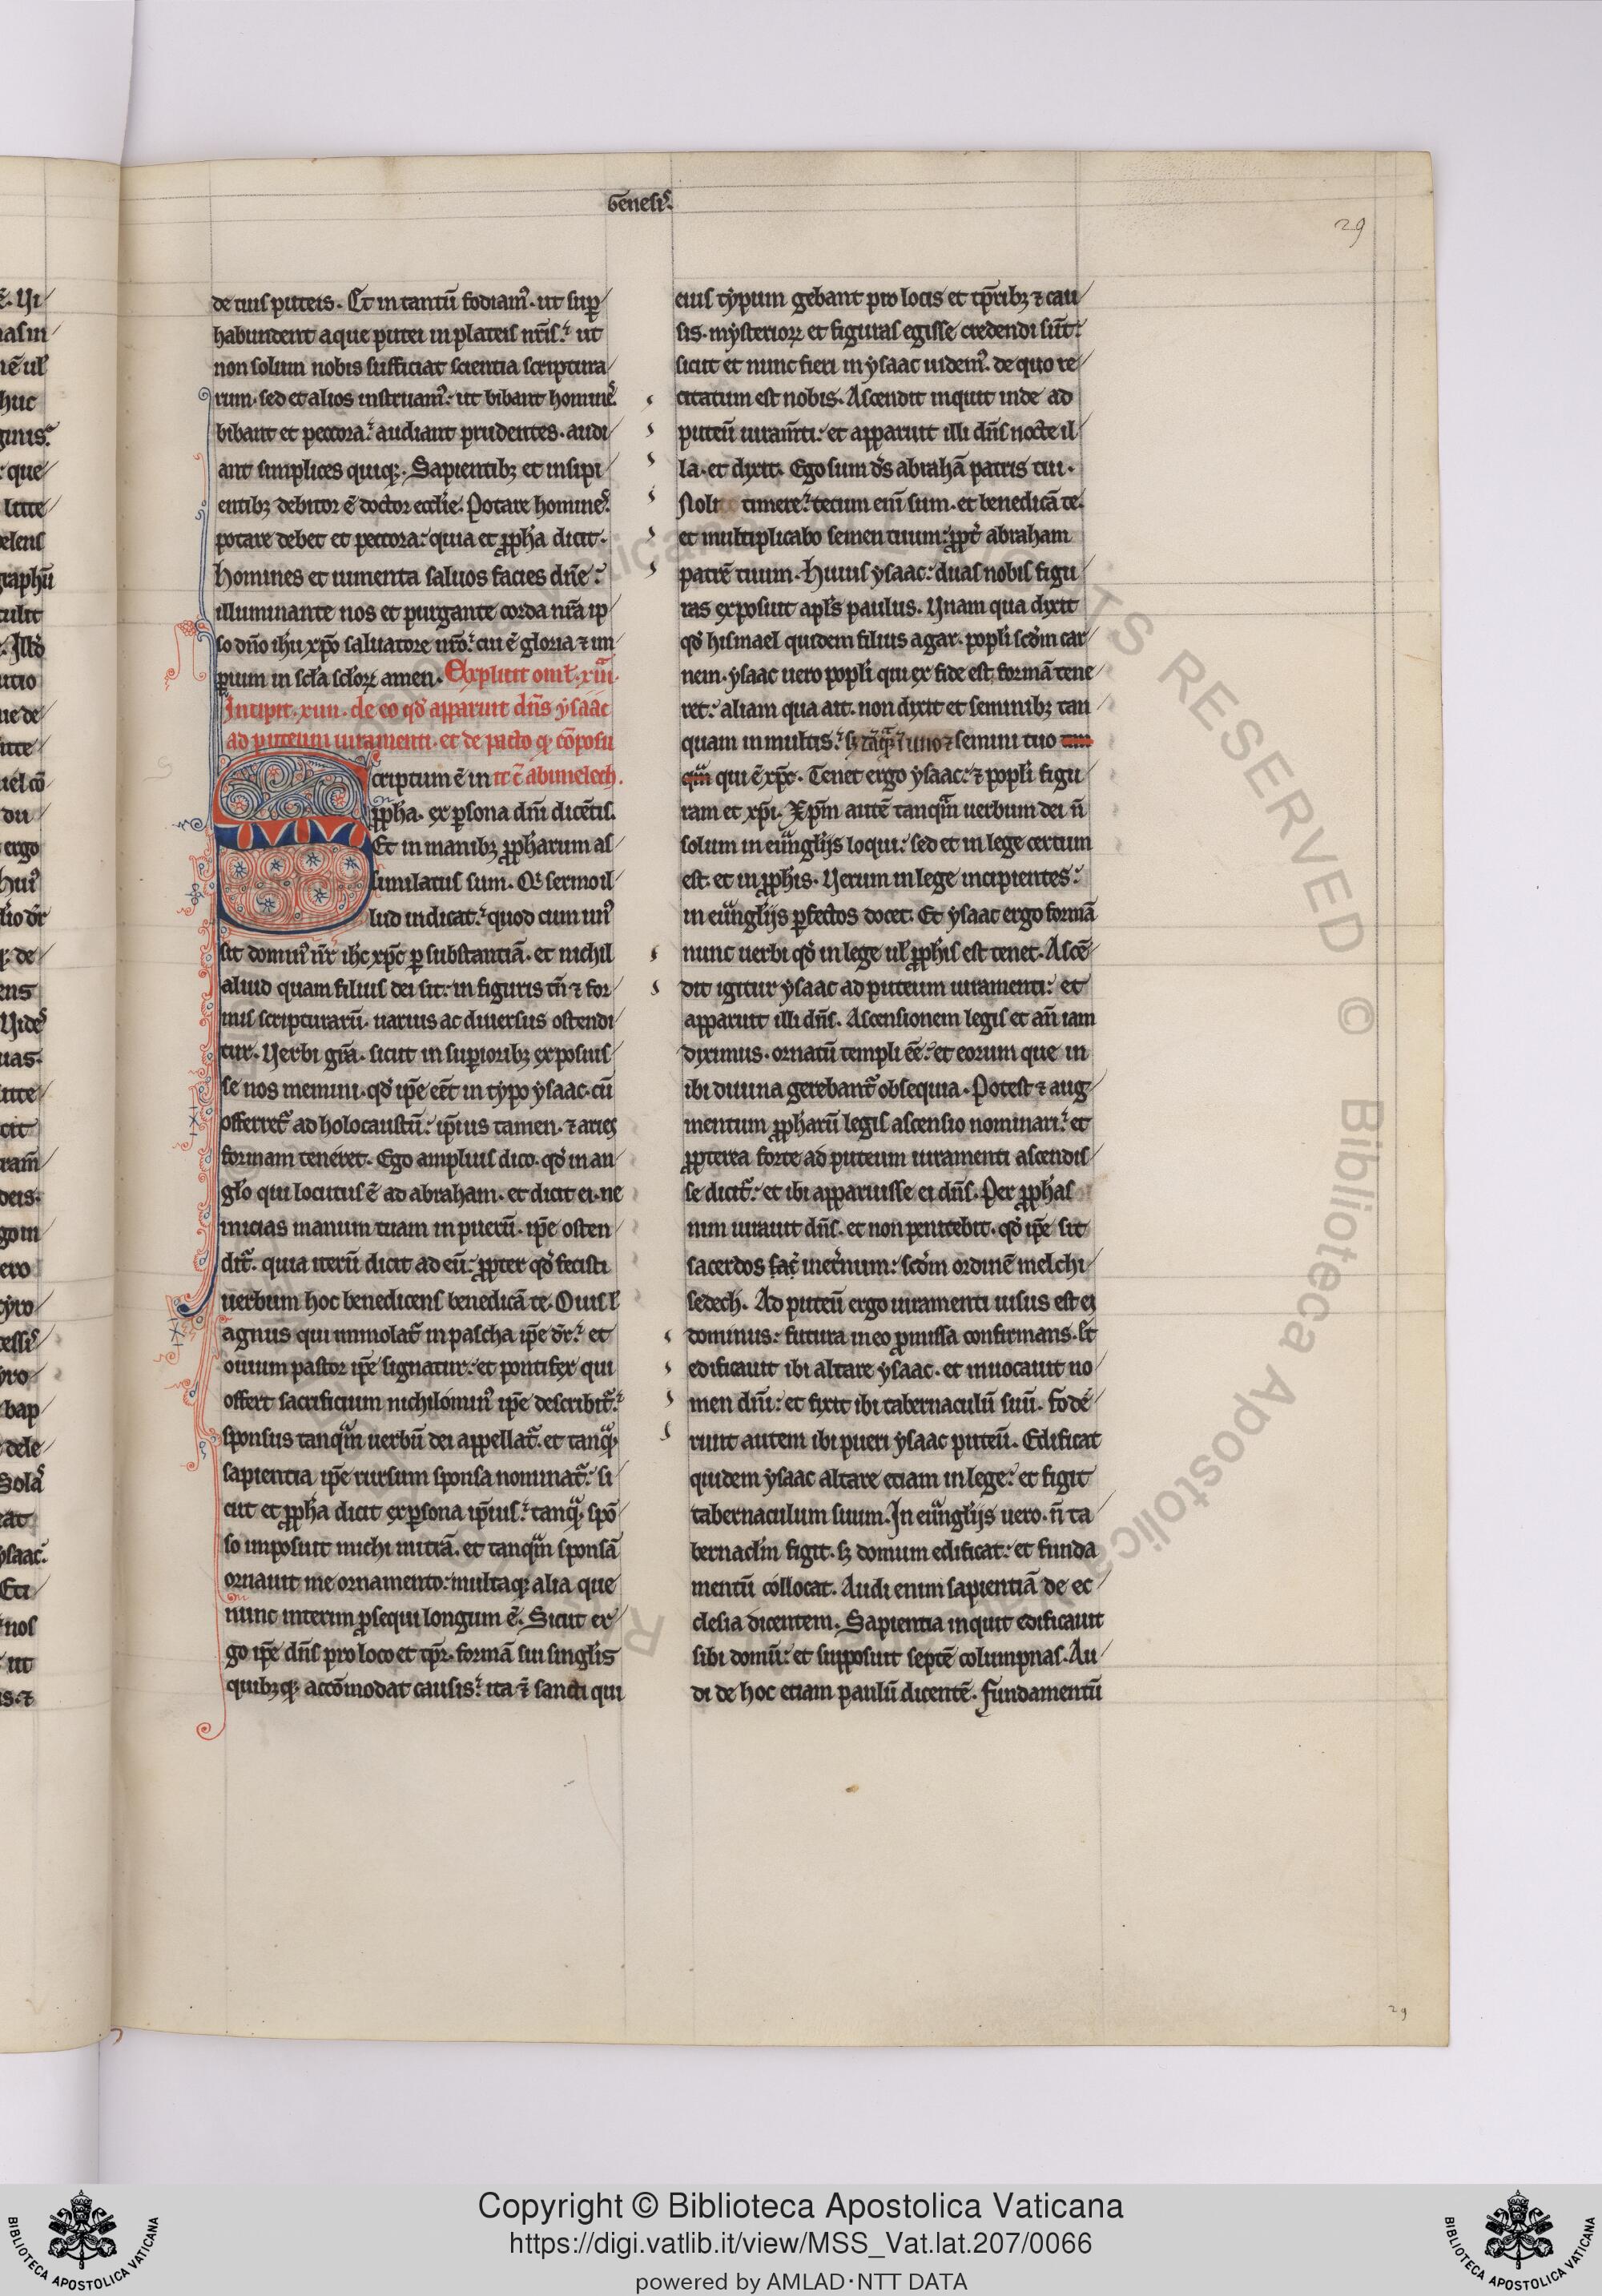 Genesis.
29
de tuis puteis. Et in tantū fodiam᷒. ut sup̄
habundent aque putei in plateis nr̄is. ut
non solum nobis sufficiat scientia scriptura
rum. sed et alios instruam᷒. ut bibant homine᷒.
bibant et peccora. audiant prudentes. audi
ant simplices quiq;. Sapientib; et insipi
entib; debitor ē doctor eccl'ie. Potare homine᷒.
potare debet et peccora. quia et ꝓpha dicit.
Homines et iumenta saluos facies dn̄e.
illuminante nos et purgante corda nr̄a ip
so dn̄o ih'u xp̄o saluatore nr̄o. cui ē gloria ⁊ im
ꝑium in scl'a scl'oꝝ amen. Explicit omī. xiii.
Incipit. xiiii. de eo qd' apparuit dn̄s ysaac
ad puteum iuramenti. et de pacto q' cōposu
Scriptum ē in it c̄ abimelech.
ꝓpha. ex ꝑsona dn̄i dicētis.
Et in manib; ꝓpharum as
similatus sum. Qi sermo il
lud indicat. quod cum un᷒
sit domin᷒ nr̄ ih̄c xp̄c ꝑ substantiā. et nichil
aliud quam filius dei sit. in figuris tn̄ ⁊ for
mis scripturarū. uarius ac diuersus ostendi
tur. Verbi gr̄a. sicut in supioribꝫ exposuis
se nos memini. qd' ip̄e eēt in typo ysaac. cū
offerret᷑ ad holocaustū. ip̄ius tamen. ⁊ aries
formam teneret. Ego amplius dico. qd' in an
gl'o qui locutus ē ad abraham. et dicit ei. ne
inicias manum tuam in puerū. ip̄e osten
dit᷑. quia iterū dicit ad eū. ꝓpter qd' fecisti
uerbum hoc benedicens benedicā te. Ouis l'
agnus qui immolat᷑ in pascha ip̄e dr̄. et
ouium pastor ip̄e signatur. et pontifex qui
offert sacrificium nichilomin᷒ ip̄e describit᷑.
sponsus tanqͣm uerbū dei appellat᷑. et tanqͣ.
sapientia ip̄e rursum sponsa nominat᷑. si
cut et ꝓpha dicit ex ꝑsona ip̄ius. tanqͣ. spō
so imposuit michi mitrā. et tanqͣm sponsā
ornauit me ornamento. multaq; alia que
nunc interim ꝑsequi longum ē. Sicut er
go ip̄e dn̄s pro loco et tp̄r. formā sui singl'is
quib;q; accōmodat causis. ita ⁊ sancti qui
eius typum gebant pro locis et tp̄rib; ⁊ cau
sis. mysterioꝝ et figuras egisse credendi sūt.
sicut et nunc fieri in ysaac uidem᷒. de quo re
citatum est nobis. Ascendit inquit inde ad
puteū iuram̄ti. et apparuit illi dn̄s nocte il
la. et dixit. Ego sum ds̄ abrahā patris tui.
Noli timere. tecum eni sum. et benedicā te.
et multiplicabo semen tuum. ꝓpt' abraham
patrē tuum. Huius ysaac. duas nobis figu
ras exposuit apl's paulus. Vnam qua dixit
qd' hismael quidem filius agar. popl'i scd'm car
nem. ysaac uero popl'i qui ex fide est, formā tene
ret. aliam qua ait. non dixit et seminib; tan
quam in multis. sꝫ tāqͣꝫ ī uno ⁊ semini tuo tan
qͣm qui ē xp̄c. Tenet ergo ysaac. ⁊ popl'i figu
ram et xp̄i. Xp̄m autē tanqͣm uerbum dei n̄
solum in euͣngl'ijs loqui. sed et in lege certum
est. et in ꝓphis. Verum in lege incipientes.
in euͣngl'ijs ꝑfectos docet. Et ysaac ergo formā
nunc uerbi qd' in lege ul' ꝓphis est tenet. Ascē
dit igitur ysaac ad puteum iuramenti. et
apparuit illi dn̄s. Ascensionem legis et an̄ iam
diximus. ornatū templi eē. et eorum que in
ibi diuina gerebant᷑ obsequia. Potest ⁊ aug
mentum ꝓpharū legis ascensio nominari. et
ꝓpterea forte ad puteum iuramenti ascendis
se dicit᷑. et ibi apparuisse ei dn̄s. Per ꝓphas
nim iurauit dn̄s. et non penitebit. qd' ip̄e sit
sacerdos sac' inet'num. scd'm ordinē melchi
sedech. Ad puteū ergo iuramenti uisus est ei
dominus. futura in eo ꝓmissa confirmans. Et
edificauit ibi altare ysaac. et inuocauit no
men dn̄i. et fixit ibi tabernaculū suū. Fode
runt autem ibi pueri ysaac puteū. Edificat
quidem ysaac altare etiam in lege. et figit
tabernaculum suum. In euͣngl'ijs uero. n̄ ta
bernacl'm figit. sꝫ domum edificat. et funda
mentū collocat. Audi enim sapientiā de ec
clesia dicentem. Sapientia inquit edificauit
sibi domū. et supposuit septē columpnas. Au
di de hoc etiam paulū dicentē. Fundamentū
29
Copyright © Biblioteca Apostolica Vaticana
https://digi.vatlib.it/view/MSS_Vat.lat.207/0066
powered by AMLAD·NTT DATA
BIBLIOTECA APOSTOLICA VATICANA
BIBLIOTECA APOSTOLICA VATICANA